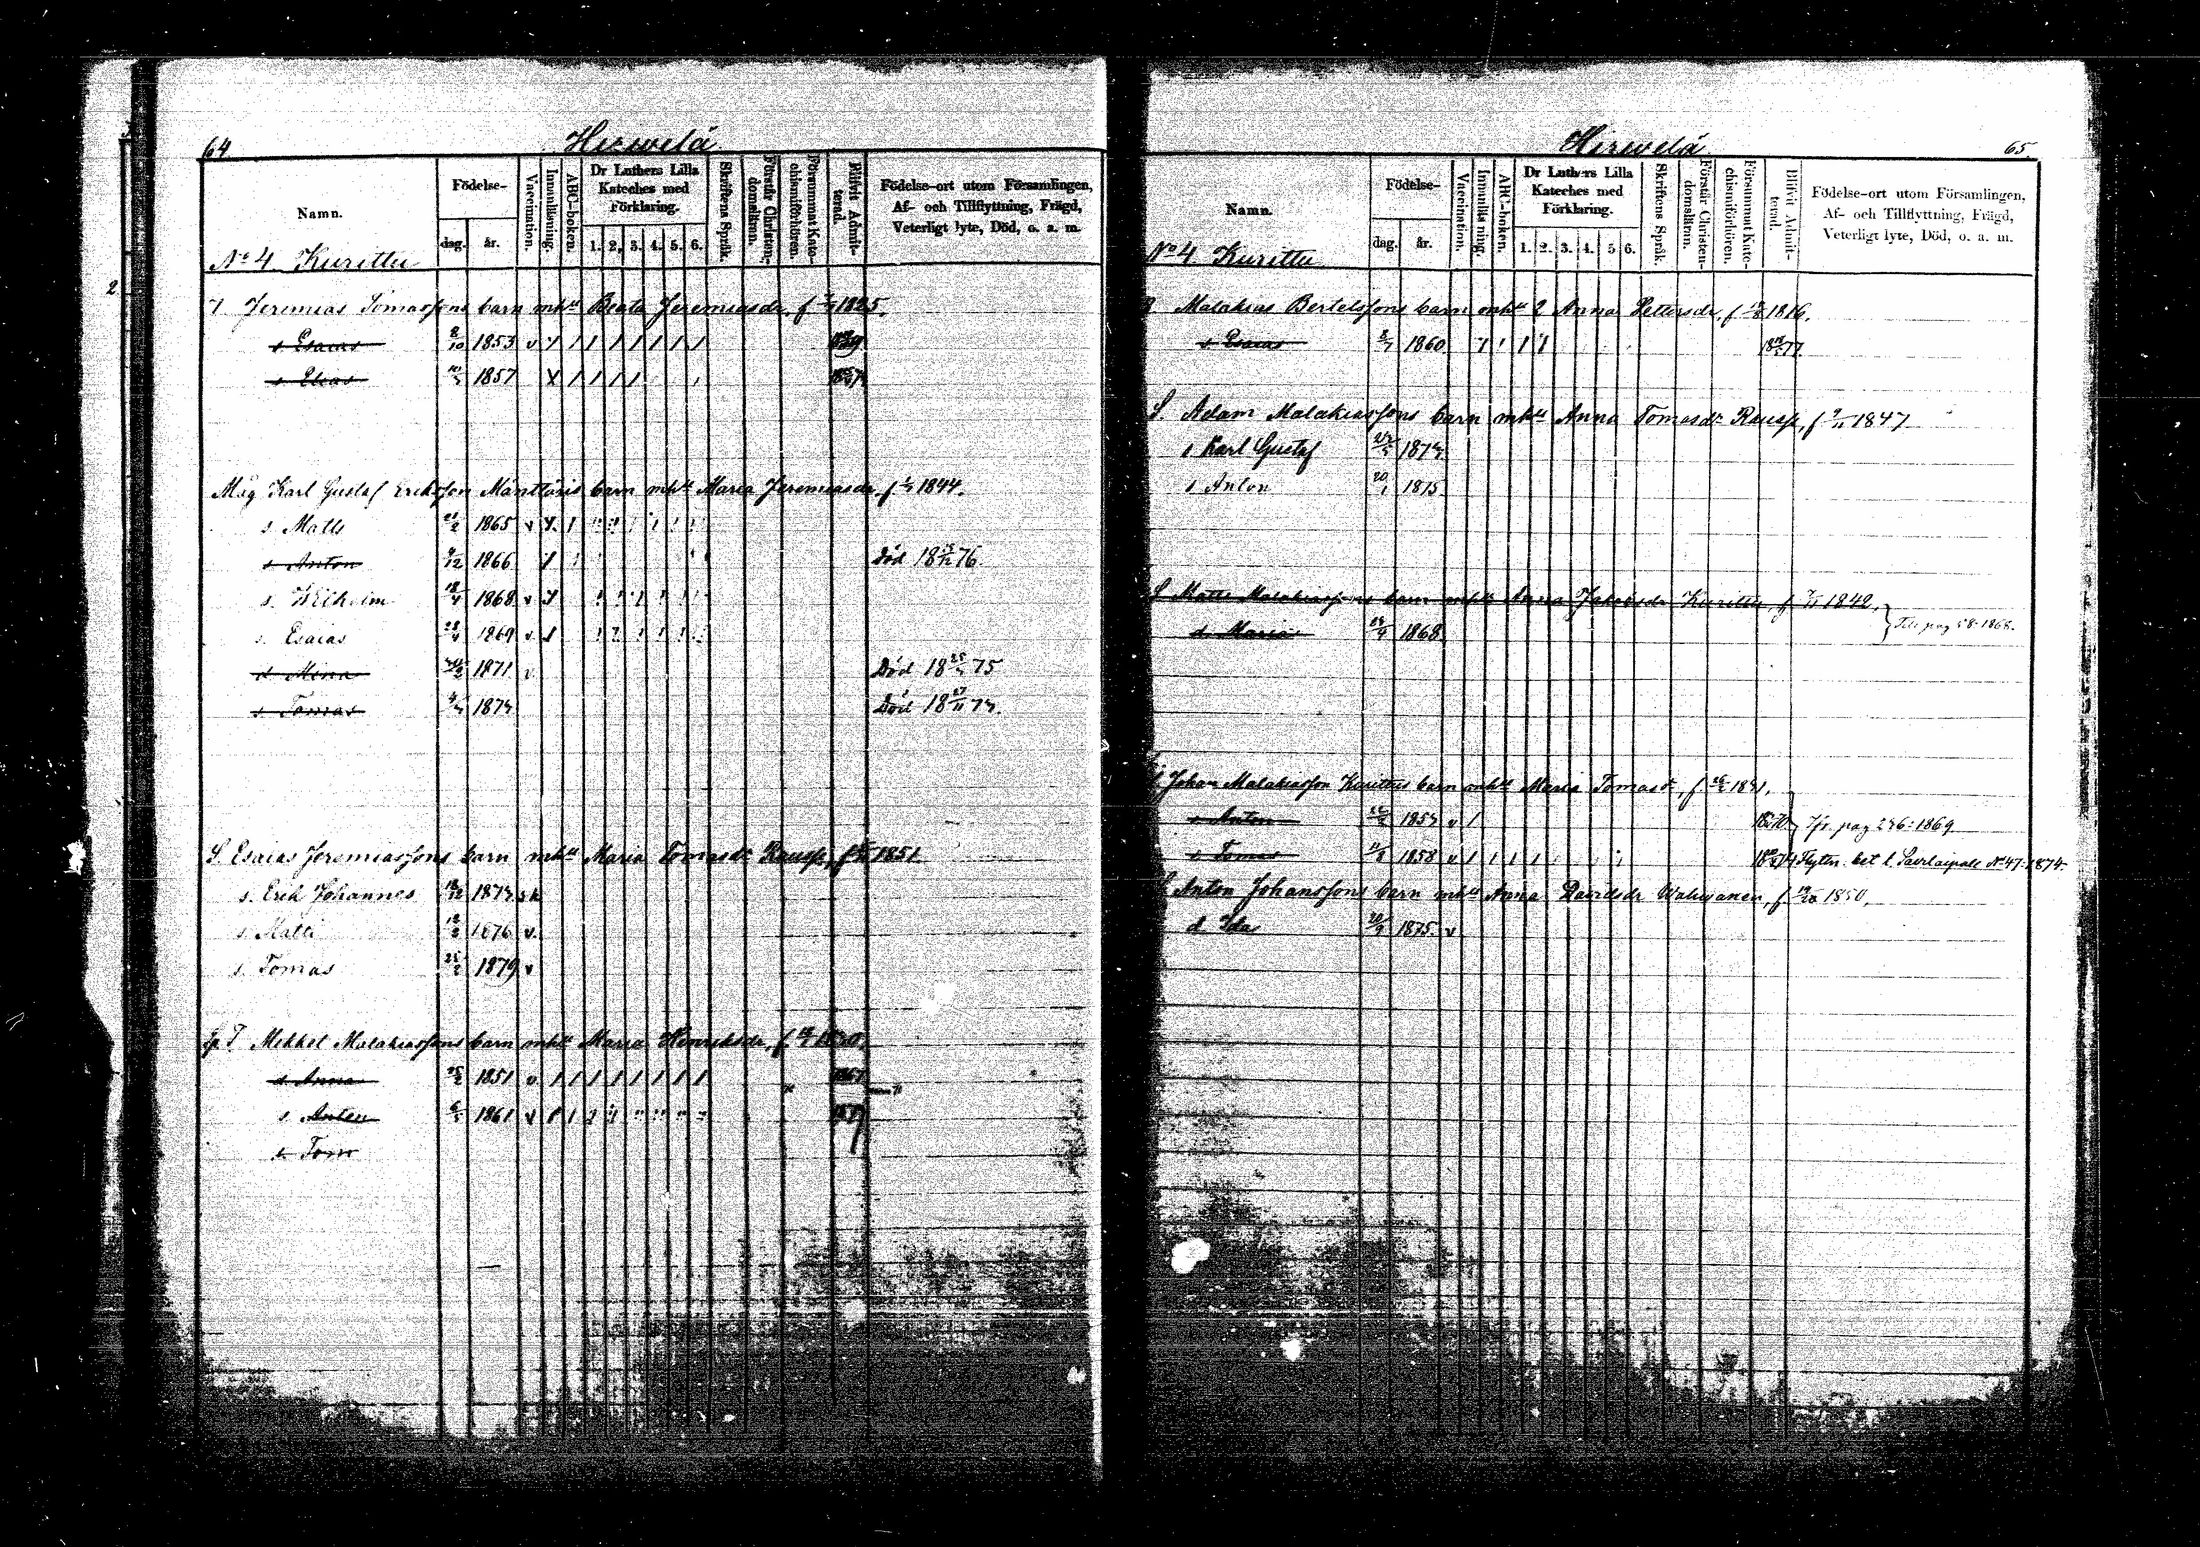 64
Hirwelä
Namn.
Födelse-
dag.
år.
Vaccination.
Innanläsning.
ABC-boken.
Dr Luthers Lilla
Kateches med
Förklaring.
1. 2. 3. 4. 5. 6.
Skriftens Språk.
Förstår Christen-
domsläran.
Försummat Kate-
chismiförhören.
Blifvit Admit-
terad.
Födelse-ort utom Församlingen,
Af- och Tillflyttning, Frägd,
Veterligt lyte, Död, o. a. m.
No 4 Kurittu
T Jeremias Tomassons barn mhu Beata Jeremiasdr, f 1825.
s Esaias 8/10 1853 v
s Elias 1857
Måg Karl Gustaf Eriksson Mänttäris barn mhu Maria Jeremiasdr f 1844.
s Matts 21/2 1865 v
s Anton 9/12 1866 Död 18 76.
s. Wilhelm 18/4 1868 v
s. Esaias 1869 v
d Mina 1871 v Död 18 75
s Tomas 1873 Död 18 27/11 73.
S. Esaias Jeremiassons barn mhu Maria Tomasdr Rausp, f 1851
s. Erik Johannes 1873
s. Matti 1876 v.
s. Tomas 25/2 1879 v
T. Mekkel Malakiassons barn mhu Maria Henriksdr, f 1830.
d Anna 25/2 1851 v
s Anton 1861 v
s. Tom
65.
Hirwelä
Namn.
Födelse-
dag.
år.
Vaccination.
Innanläsning.
ABC-boken.
Dr Luthers Lilla
Kateches med
Förklaring.
1. 2. 3. 4. 5 6.
Skriftens Språk.
Förstår Christen-
domsläran.
Försummat Kate-
chismiförhören.
Blifvit Admit-
terad.
Födelse-ort utom Församlingen,
Af- och Tillflyttning, Frägd,
Veterligt lyte, Död, o. a. m.
No 4 Kurittu
Malakias Bertelssons barn mhu 2 Anna Pettersdr, f 1816.
s Esaias 1860 77
S. Adam Malakiassons barn mhu Anna Tomasdr Rausp, f 9/11 1847
s Karl Gustaf 1873
s Anton 20/1 1875
S Matts Malakiassons barn mhu Anna Jakobsdr Kurittu, f 1842,
d Maria 1868 pag 58-1868.
Johan Malakiasson Kurittus barn mhu Maria Tomasdr, f 1831,
s Anton 1853 v pag 236: 1869
s Tomas 1858 v 74 Flyttn. bet t. Savitaipale No 47: 1874.
Anton Johanssons barn mhu Anna Davidsdr, f 1850,
d Ida 20/9 1875. v